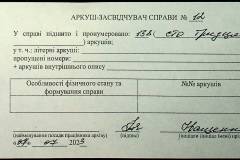 АРКУШ-ЗАСВІДЧУВАЧ СПРАВИ № 12
У справі підшито і пронумеровано: 132 (сто тридця
) аркушів;
у т. ч.: літерні аркуші:
пропущені номери:
+ аркушів внутрішнього опису
Особливості фізичного стану та формування справи
№№ аркушів
(найменування посади працівника архіву)
(підпис)
07 2023